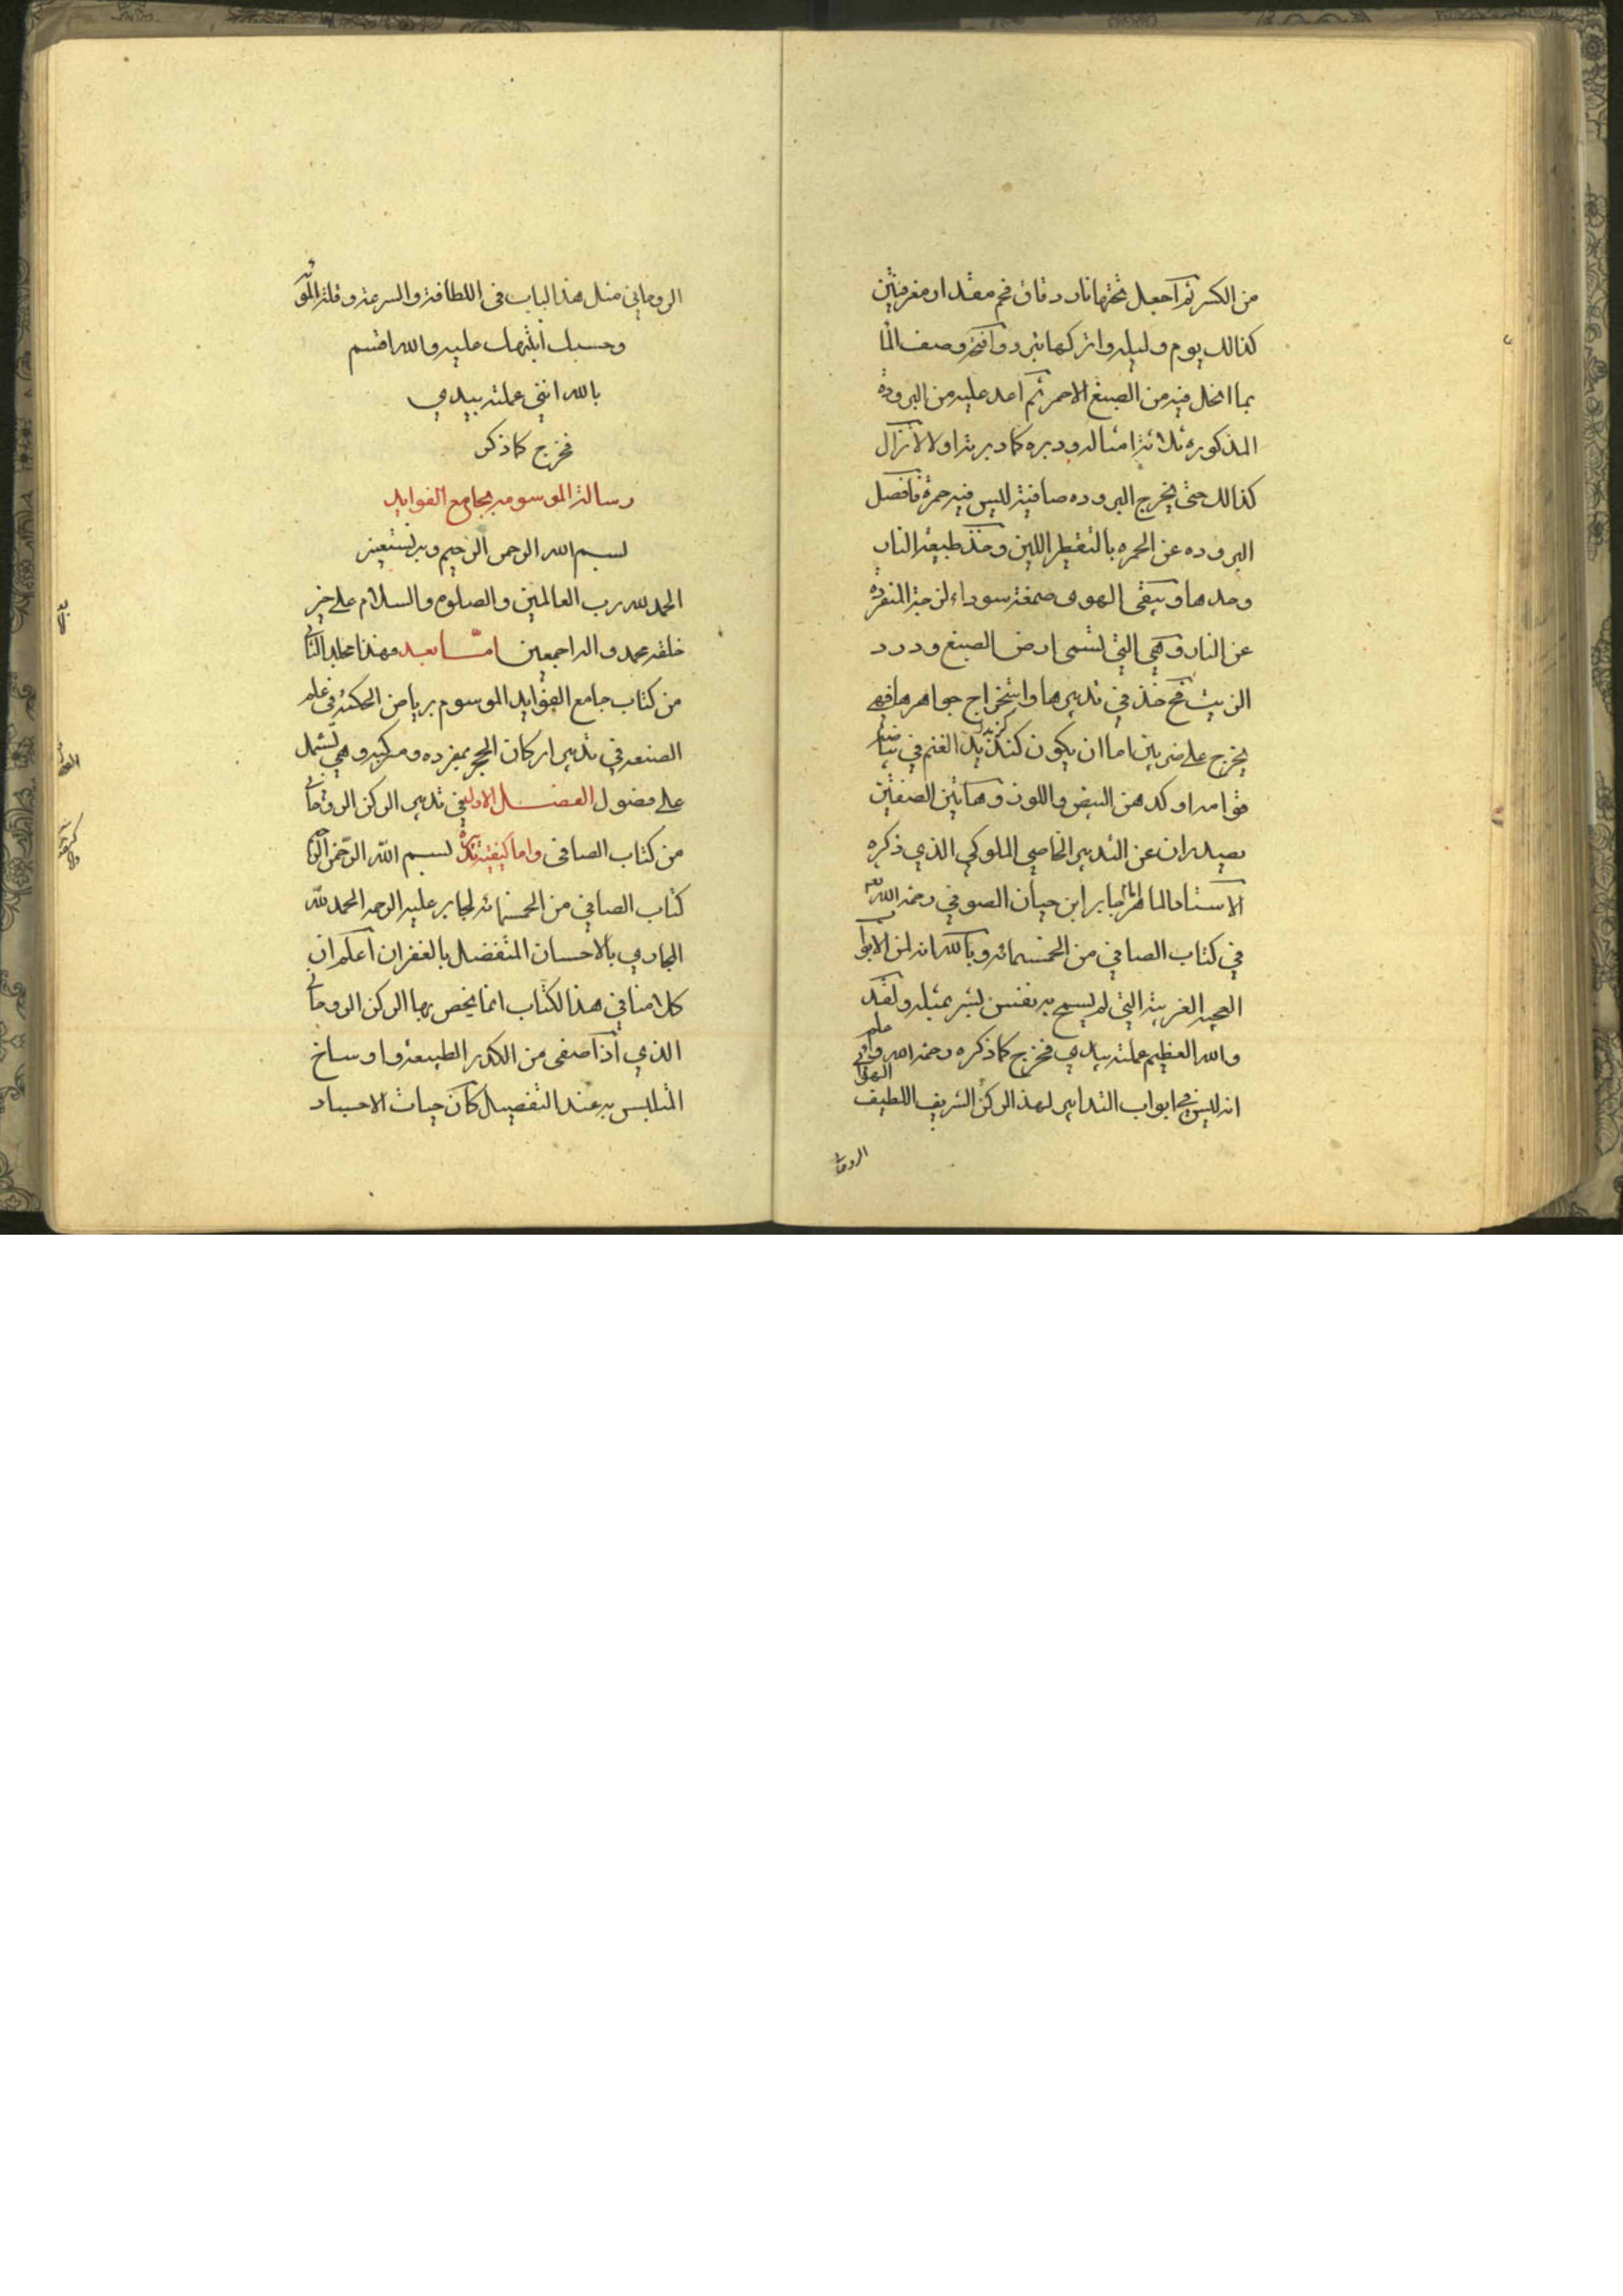 من الكسر ثم اجعل تحتها نار دقاق فحم مقدار مغرفتين
كذالك يوم وليله واتركها تبرد وافتح وصف الما
بما انحل فيه من الصبغ الاحمر ثم اعد عليه من البروده
المذكوره ثلاثة امثاله ودبره كما دبرته اولا لاتزال
كذالك حتى يخرج البروده صافية ليس فيه حمرة فافصل
البروده عن الحمره بالتقطير اللين وخذ طبيعة النار
وحدها ويبقى الهوى صمغة سوداء لزجة المنفردة
عن النار وهي التي تسمى ارض الصبغ ودرد
الزيت فخذ في تدبيرها واستخراج جواهرها فهي
يخرج على ضربين اما ان يكون كذبد الغنم في بياضه
كزبد
قوامه اوكدهن البيض واللون وهاتين الصفتين
يصدران عن التدبير الخاصي الملوكي الذي ذكره
الاستاد الماهر جابر ابن حيان الصوفي رحمة الله
في كتاب الصافي من الخمسمائه وبالله انه لمن الابواب
العجيبه الغريبة التي لم يسمح به نفس لبشر بمثله ولقد
والله العظيم عملته بيدي فخرج كما ذكره رحمة الله
انه ليس في ابواب التدابير لهذ الركن الشريف اللطيف
الهوائي
الروحاني
الروحاني مثل هذ الباب في اللطافة والسرعة وقلة المؤنه
وحسبك انبتهك عليه والله اقسم
بالله انني عملته بيدي
فخرج كما ذكر
رسالة الموسومه بجامع الفوايد
بسم الله الرحمن الرحيم وبه نستعين
الحمد لله رب العالمين والصلوه والسلام على خير
خلقه محمد واله اجمعين اما بعد فهذا مجلد الثاني
من كتاب جامع الفوايد الموسوم برياض الحكمة في علم
الصنعه في تدبير اركان الحجر بمفرده ومركبه وهي تشتمل
على فصول الفصل الاول في تدبير الركن الروحاني
من كتاب الصافي واما كيفية تدبيره بسم الله الرحمن الرحيم
كتاب الصافي من الخمسمائه لجابر عليه الرحمه الحمد لله
الجاري بالاحسان المتفضل بالغفران اعلم ان
كلامنا في هذ الكتاب انما يخص بها الركن الروحاني
الذي اذا صفى من الكدر الطبيعة واوساخ
المتلبس به عند التفصيل كان حيات الاجساد